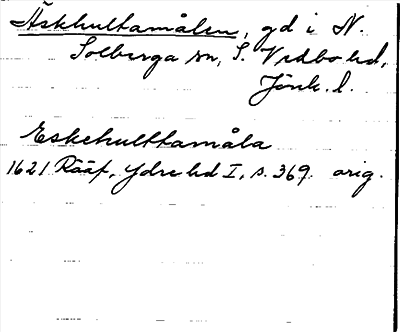 Äskhultamålen, gd i N.
Solberga sn, S. Vedbo hd,
Jönk. l.
Eskehulttamåla
1621 Rääf, Ydre hd I, s. 369. orig.